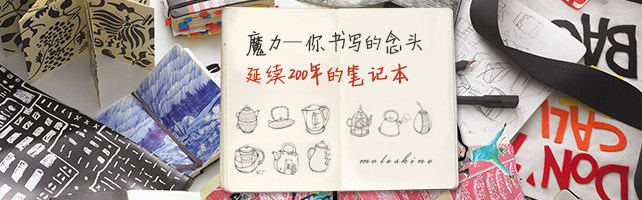 魔力—你书写的念头
延续200年的笔记本
moleskine
BAG
CALI
DON'T